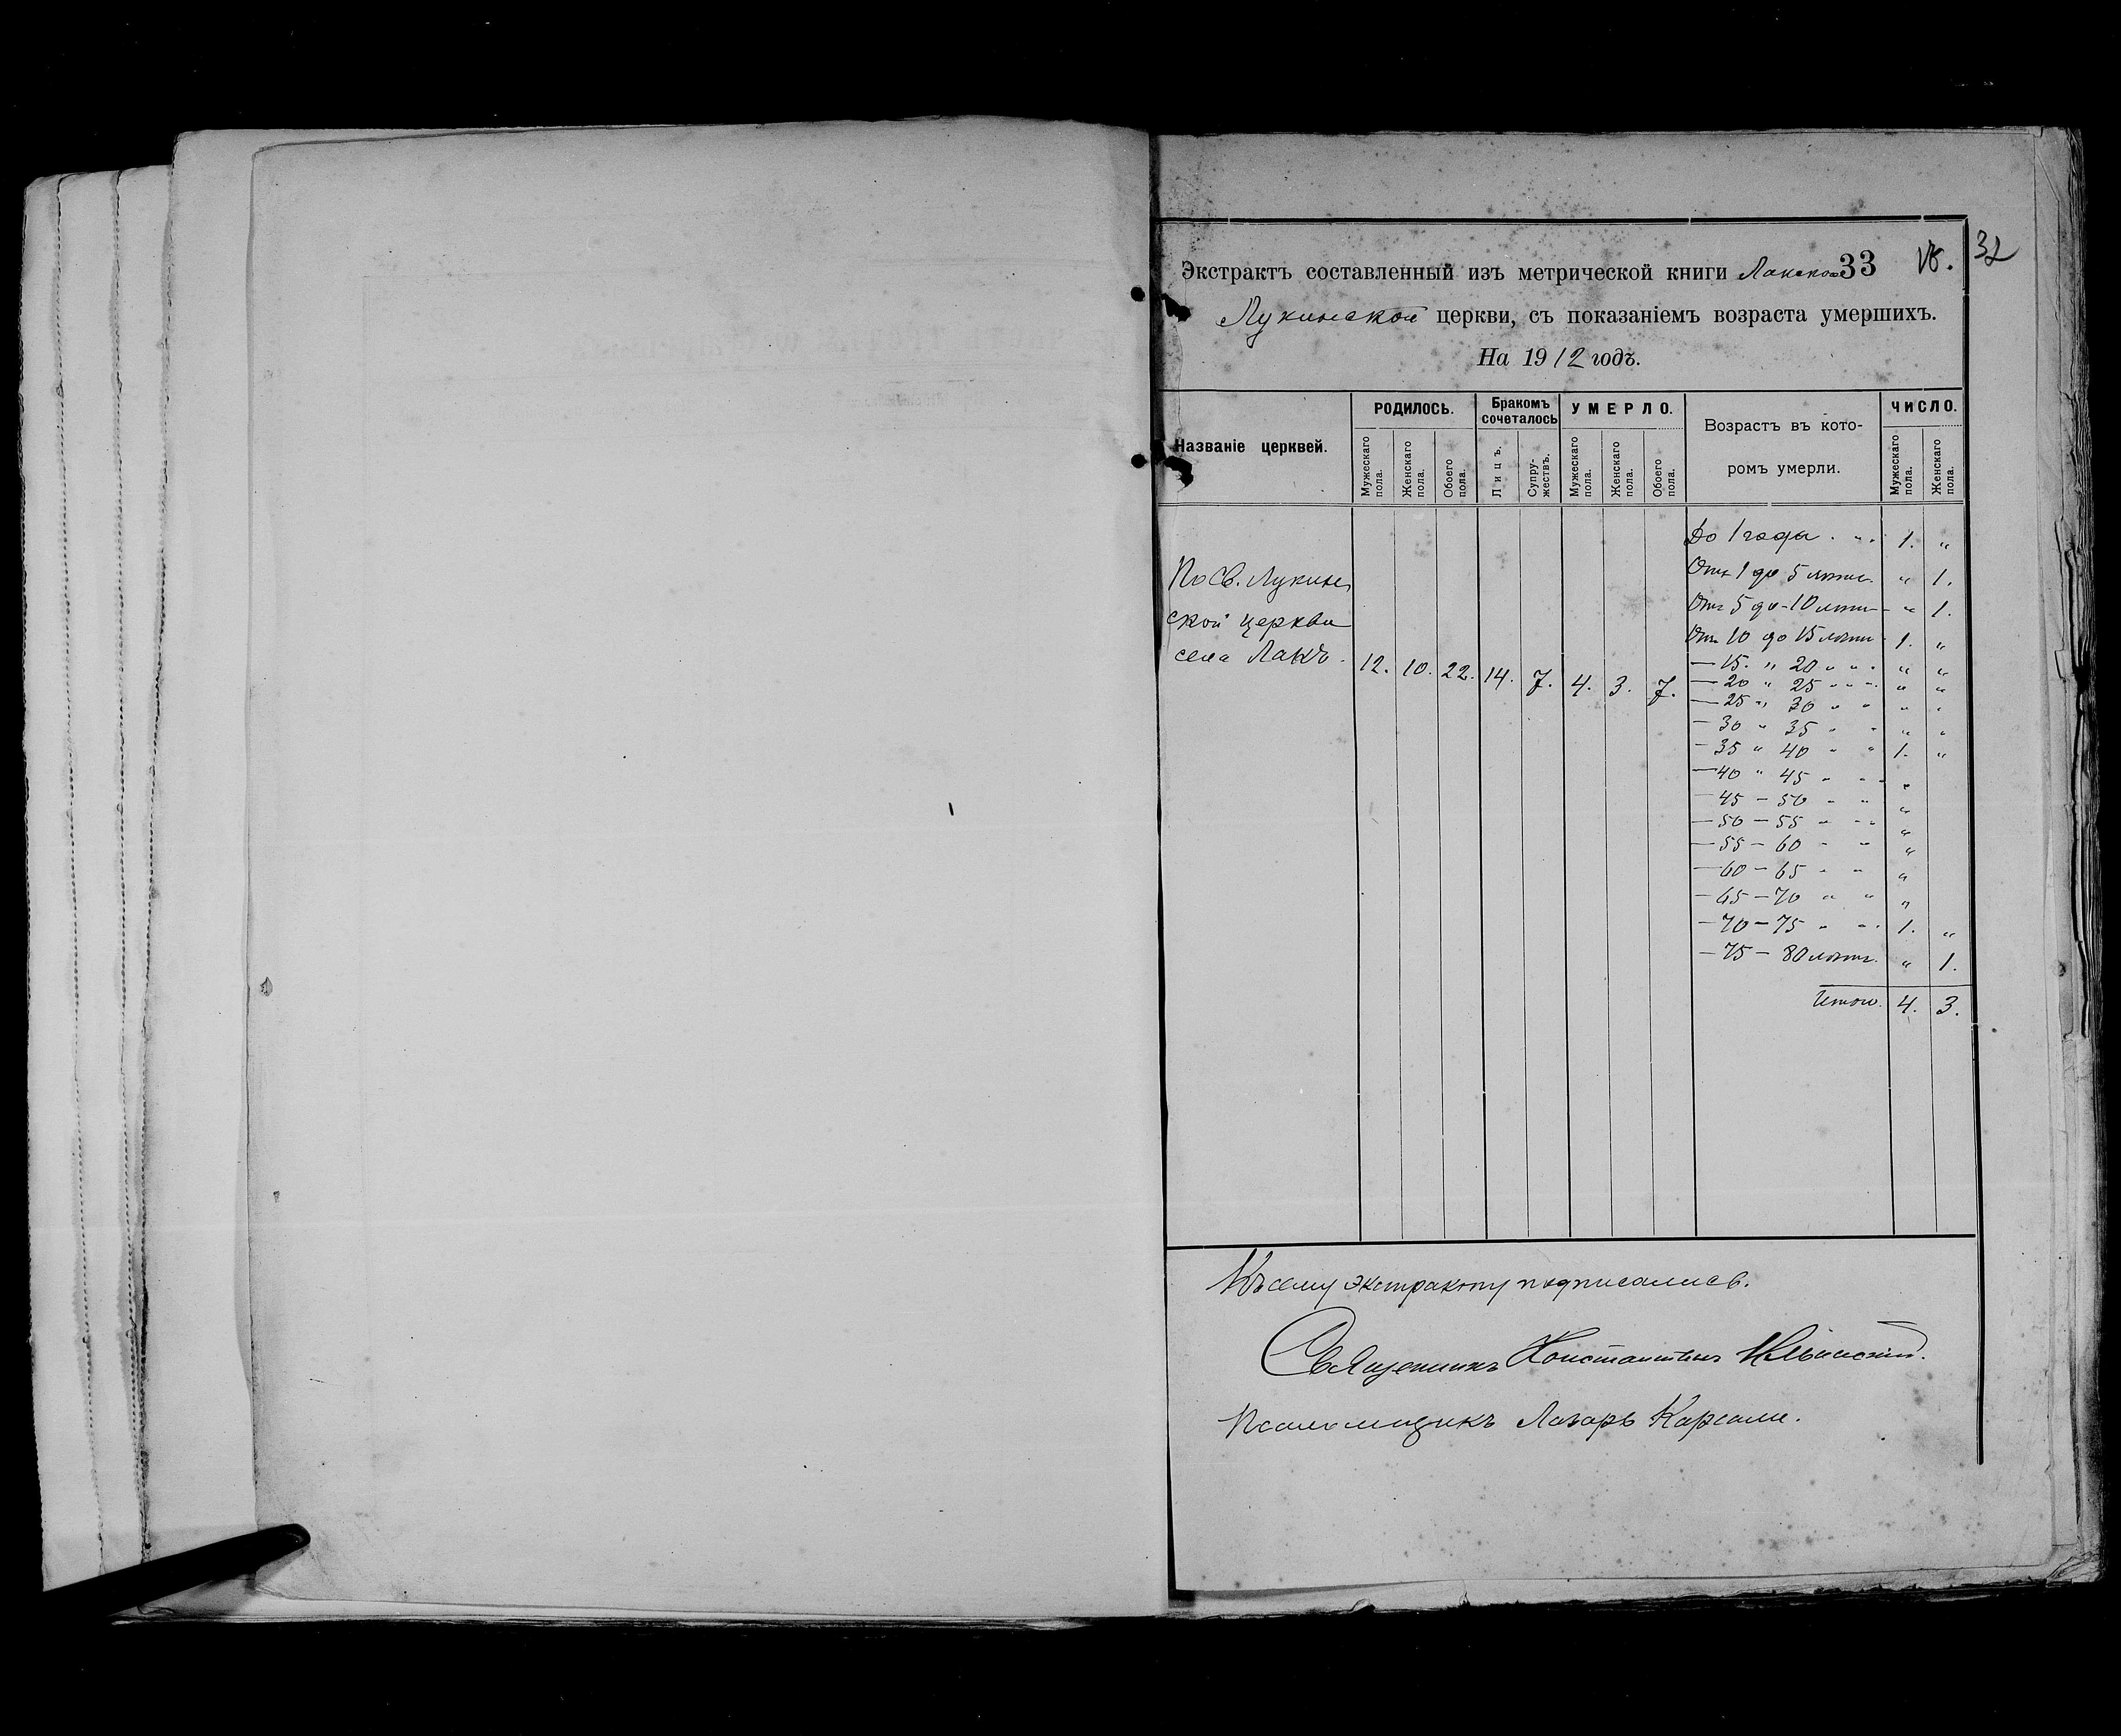 32
Экстрактъ составленный изъ метрической книги Лакской 33
Лукинской церкви, съ показаніемъ возраста умершихъ.
На 1912 годъ.
Названіе церквей.
РОДИЛОСЬ.
Бракомъ сочеталось
УМЕРЛО.
Возрастъ въ кото-
ромъ умерли.
ЧИСЛО.
Мужескаго пола.
Женскаго пола.
Обоего пола.
Лицъ.
Супру-
жествъ.
Мужескаго пола.
Женскаго пола.
Обоего пола.
Мужескаго пола.
Женскаго пола.
По Св. Лукин
ской церкви
села Лакъ. 12. 10. 22. 14. 7. 4. 3. 7.
До 1 года . " . 1. "
Отъ 1 до 5 лѣтъ " 1.
Отъ 5 до - 10 лѣтъ - " 1.
Отъ 10 до 15 лѣтъ 1. "
— 15. " 20 " " " " "
— 20 " 25 " " " " "
— 25 " 30 " " " "
— 30 " 35 " " " "
— 35 " 40 " " 1. "
— 40 " 45 " " "
— 45 — 50 " " "
— 50 — 55 " " "
— 55 — 60 " " "
— 60 — 65 " " "
— 65 — 70 " " "
— 70 — 75 " " 1. "
— 75 — 80 лѣтъ. " 1.
Итого. 4. 3.
Къ сему экстракту подписались.
Священникъ Константинъ
Псаломщикъ Лазарь